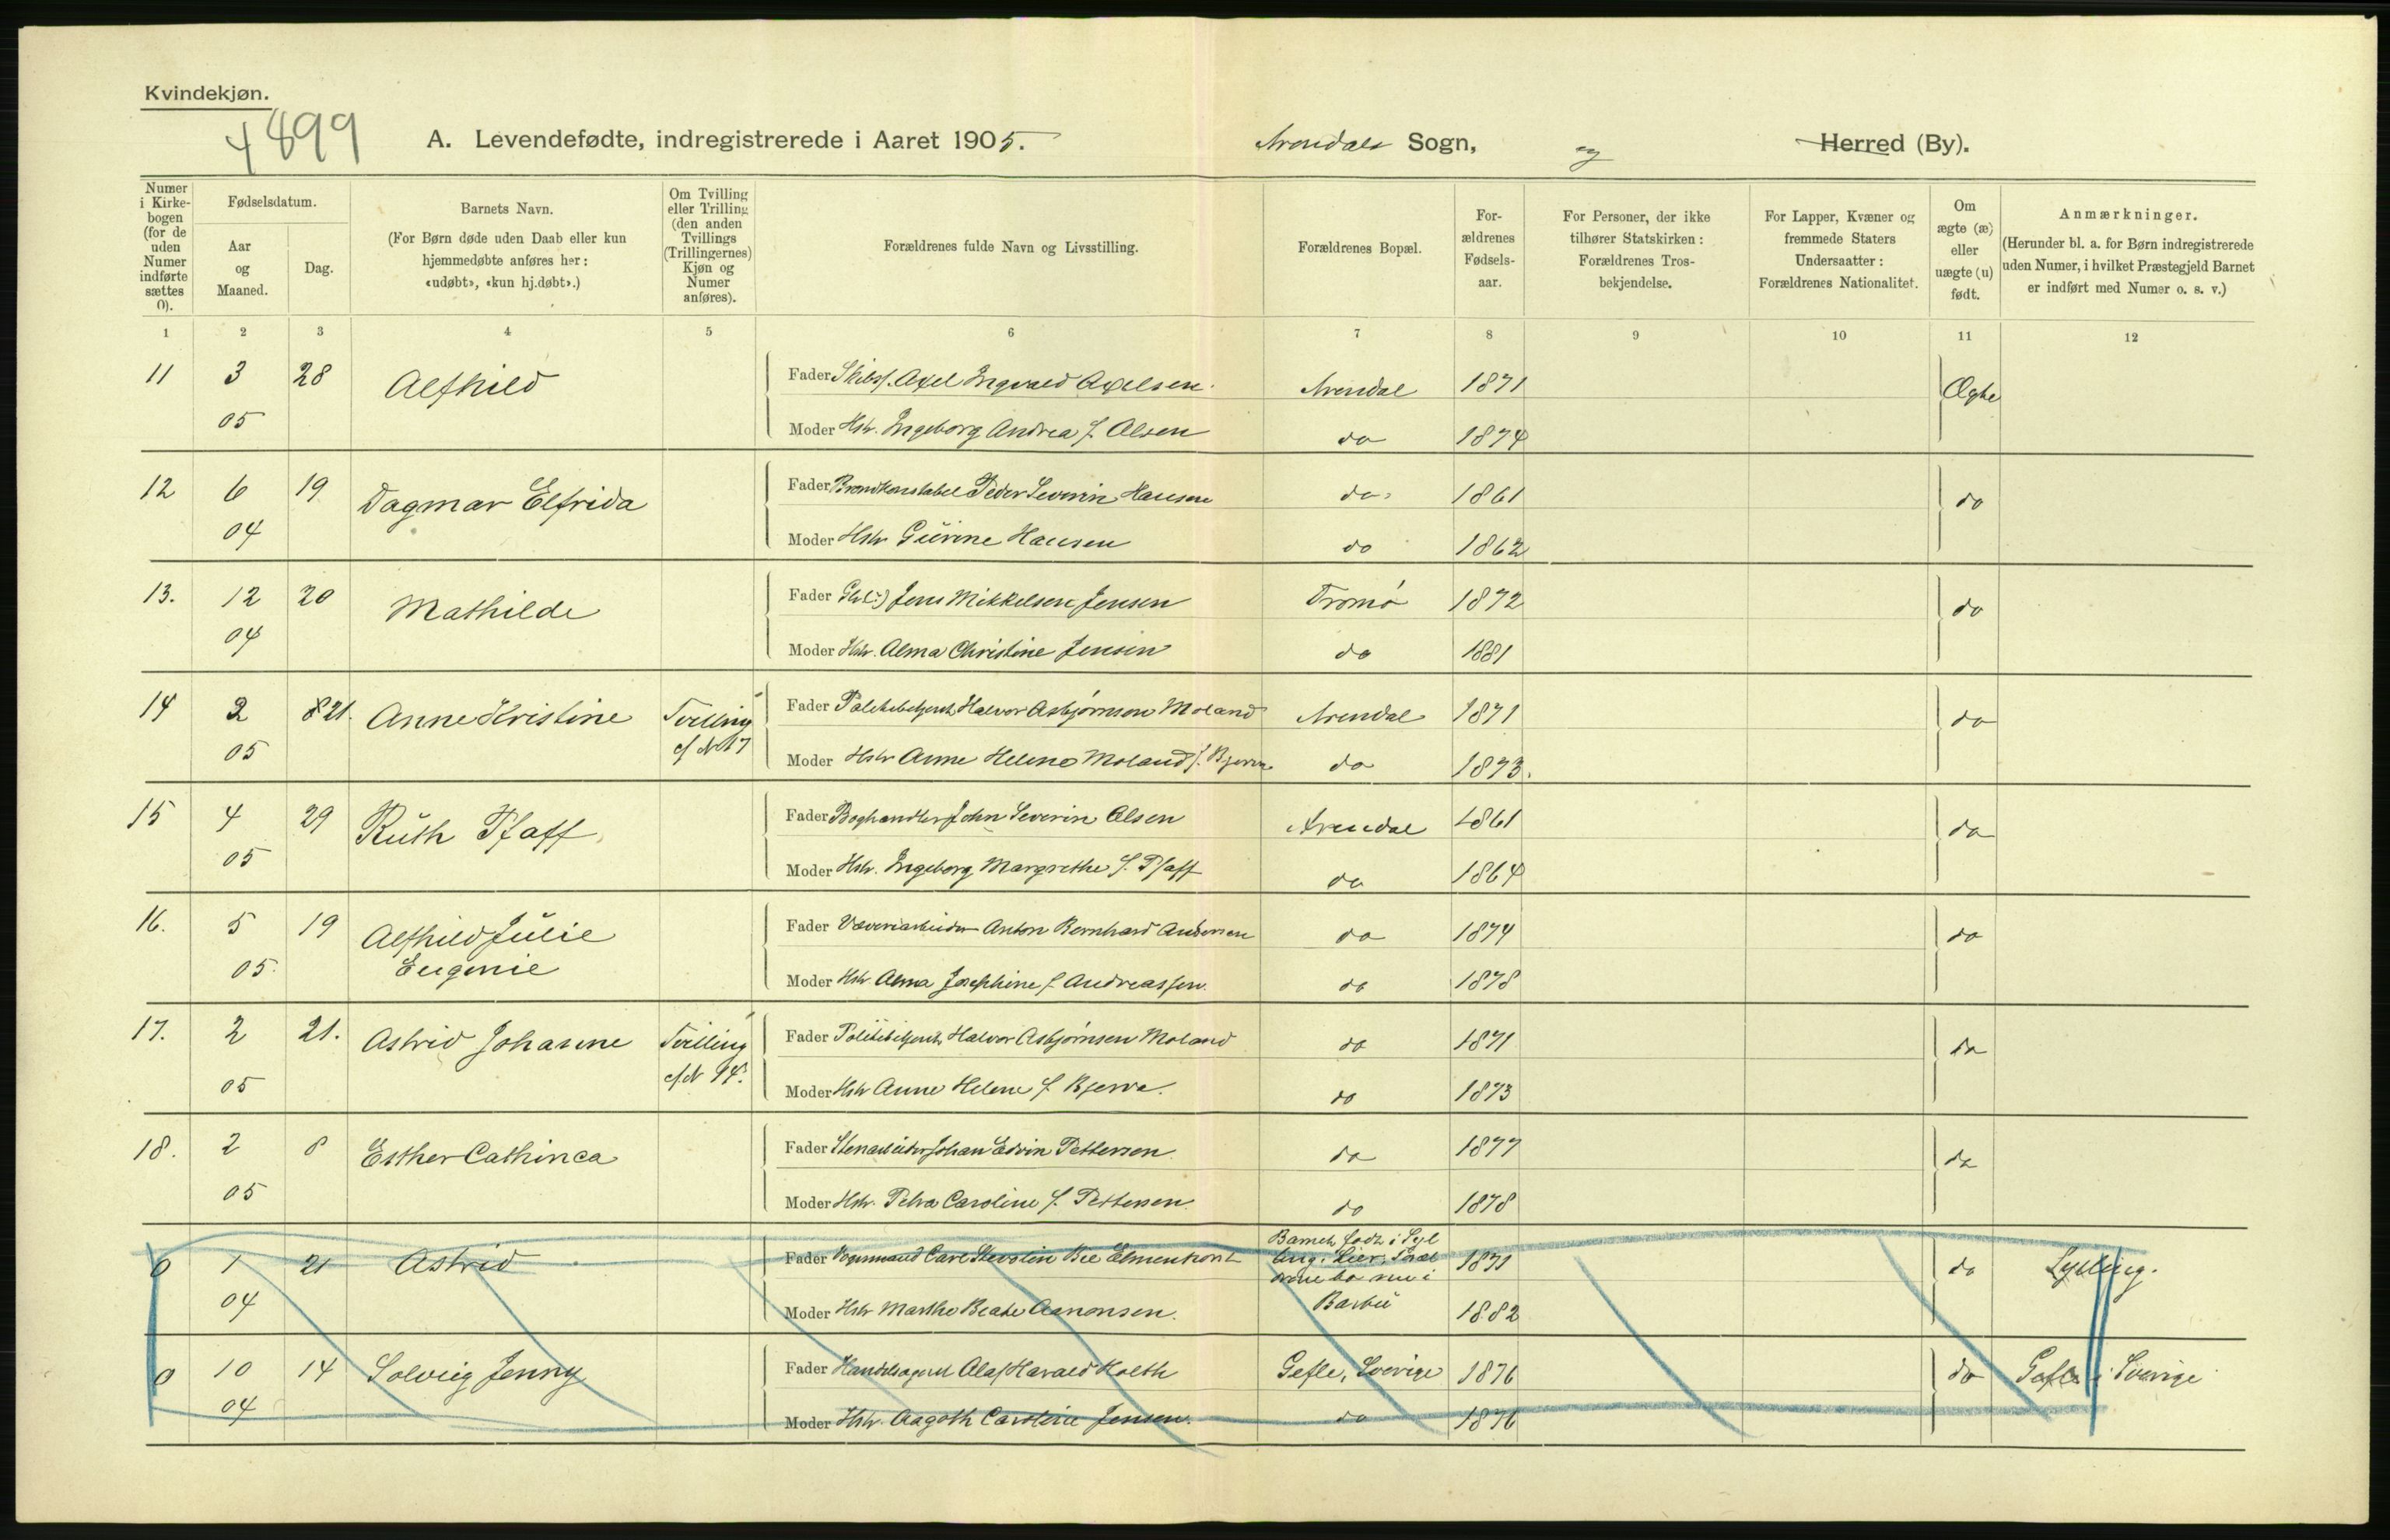 Kvindekjøn.
4899
A. Levendefødte, indregistrerede i Aaret 1905.
Arendals Sogn, og Herred (By).
Numer i Kirkebogen (for de uden Numer indførte sættes 0).
Fødselsdatum.
Aar og Maaned.
Dag.
Barnets Navn.
(For Børn døde uden Daab eller kun hjemmedøbte anføres her: «udøbt», «kun hj.døbt».)
Om Tvilling eller Trilling (den anden Tvillings (Trillingernes) Kjøn og Numer anføres).
Forældrenes fulde Navn og Livsstilling.
Forældrenes Bopæl.
Forældrenes Fødselsaar.
For Personer, der ikke tilhører Statskirken: Forældrenes Trosbekjendelse.
For Lapper, Kvæner og fremmede Staters Undersaatter: Forældrenes Nationalitet.
Om ægte (æ) eller uægte (u) født.
Anmærkninger.
(Herunder bl. a. for Børn indregistrerede uden Numer, i hvilket Præstegjeld Barnet er indført med Numer o. s. v.)
1 2 3 4 5 6 7 8 9 10 11 12
11 3 28 Alfhild Fader Skibsf. Axel Ingvald Axelsen Arendal 1871 Ægte
05 Moder Hstr. Ingeborg Andrea f. Olsen do 1874
12 6 19 Dagmar Elfrida Fader Brandkonstabel Peder Severin Hansen do 1861 do
04 Moder Hstr Gurine Hansen do 1862
13. 12 20 Mathilde Fader Jens Mikkelsen Jensen Tromø 1872 do
04 Moder Hstr. Alma Christine Jensen do 1881
14 2 8 21. Anne Kristine Tvilling Fader Politibetjent Halvor Asbjørnson Moland Arendal 1871 do
05 cf No 17 Moder Hstr Anne Helene Moland f. Bjerva do 1873.
15 4 29 Ruth Pfaff Fader Boghandler John Severin Olsen Arendal 1861 do
05 Moder Hstr. Ingeborg Margrethe f. Pfaff do 1864
16. 5 19 Alfhild Julie Fader Væveriarbeider Anton Bernhard Andersen do 1874 do
05. Eugenie Moder Hstr. Alma Josephine f. Andreassen. do 1878
17. 2 21. Astrid Johanne Tvilling Fader Politibetjent Halvor Asbjørnsen Moland do 1871 do
05 cf N 14. Moder Hstr Anne Helene f. Bjerva. do 1873
18. 2 8 Esther Cathinca Fader Stenarbeider Johan Edvin Pettersen do 1877 do
05 Moder Hstr. Petra Caroline f. Pettersen. do 1878
Barnet født i Syl
0 1 21 Astrid Fader Carl Bie ling i Lier, Foræl 1871 do Sylling.
drene bo nu i
04 Moder Hstr Marthe Beate Aanonsen. Barbu 1882
0 10 14 Solveig Jenny Fader Handelsagent Olaf Harald Holth Gefle, Sverige 1876 do Gefle i Sverige
04 Moder Hstr. Aagoth Caroline Jensen. do 1876